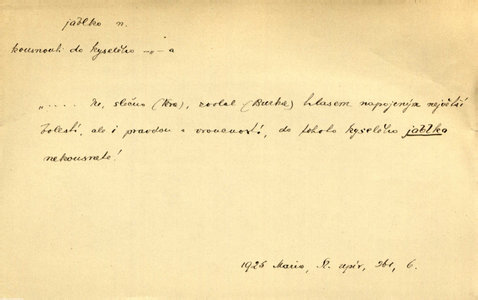 jablko n.
kousnouti do kyselého -„- a
„.... Ne, slečno (Eva), zvolal (Burka) hlasem napojeným největší
bolestí, ale i pravdou a vroucností, do tohoto kyselého jablka
nekousnete!
1925 Maria, Vl. upír, 361, 6.